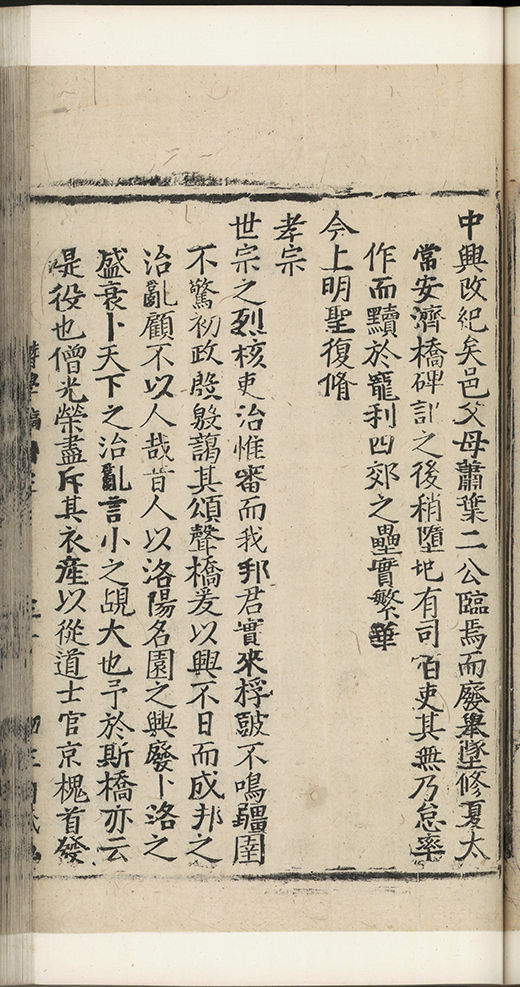 中興改紀矣邑父母蕭葉二公臨焉而廢舉墜修夏太
常安濟橋碑記之後稍墮地有司百吏其無乃怠率
作而黷於寵利四郊之壘實繁華
今上明聖復脩
孝宗
世宗之烈核吏治惟審而我邦君實來桴鼓不鳴疆圉
不驚初政殷殷藹其頌聲橋爰以興不日而成邦之
治亂顧不以人哉昔人以洛陽名園之興廢卜洛之
盛衰卜天下之治亂言小之覘大也予於斯橋亦云
是役也僧光榮盡斥其衣產以從道士官京槐首發